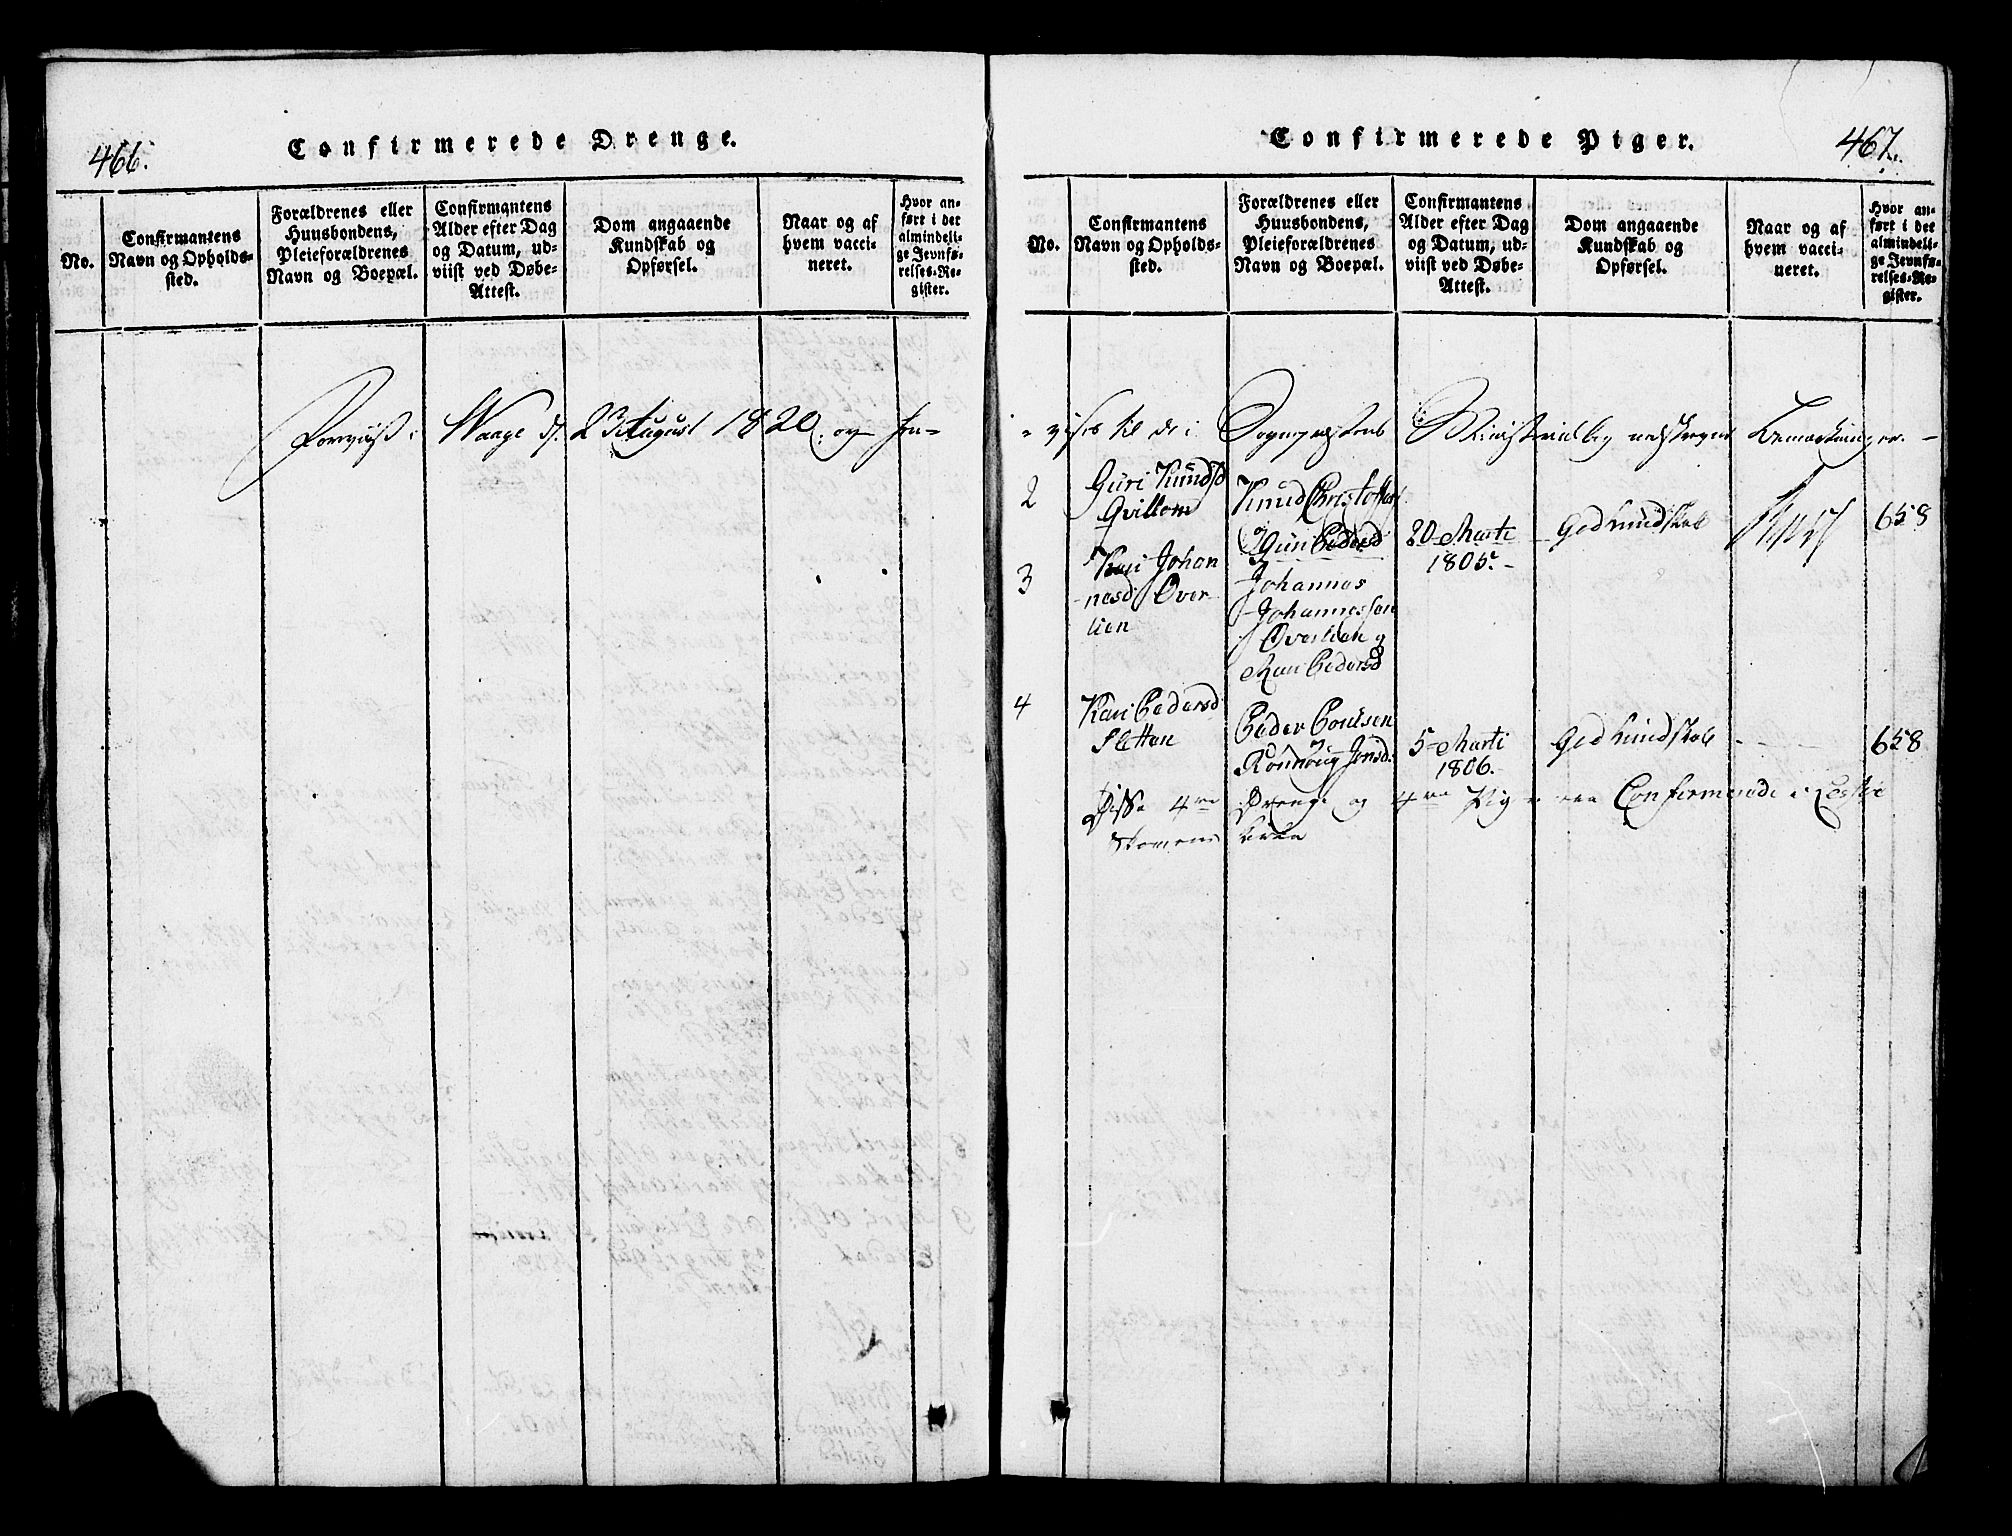 466.
Confirmerede Drenge.
No.
Confirmantens
Navn og Opholds-
sted.
Forældrenes eller
Huusbondens,
Pleieforældrenes
Navn og Boepæl.
Confirmantens
Alder efter Dag
og Datum, ud-
viist ved Døbe-
Attest.
Dom angaaende
Kundskab og
Opførsel.
Naar og af
hvem vacci-
neret.
Hvor an-
ført i det
almindeli-
ge Jevnfø-
relses-Re-
gister.
Waage d. 23 August 1820. og hen-
Confirmerede Piger.
467.
No.
Confirmantens
Navn og Opholds-
sted.
Forældrenes eller
Huusbondens,
Pleieforældrenes
Navn og Boepæl.
Confirmantens
Alder efter Dag
og Datum, ud-
viist ved Døbe-
Attest.
Dom angaaende
Kundskab og
Opførsel.
Naar og af
hvem vacci-
neret.
Hvor an-
ført i det
almindeli-
ge Jevnfø-
relses-Re-
gister.
vises til de i Sognepræstens Ministerialbog Bemærkninger. -
2
Guri Knudsd
Qvillem
Knud Christoffers
Guri Pedersd
20 Marti
1805.
God kundskab
658
3
Kari Johan
nesd Øver
lien
Johannes
Johannessen
Øverlien og
Mari Pedersd
4
Kari Pedersd
Sletten
Peder Poulsen
Rønnoug Jonsd.
5 Marti
1806.
God kundskab
658
Disse 4re Drenge og 4re Piger ere Confirmerede i Leskə